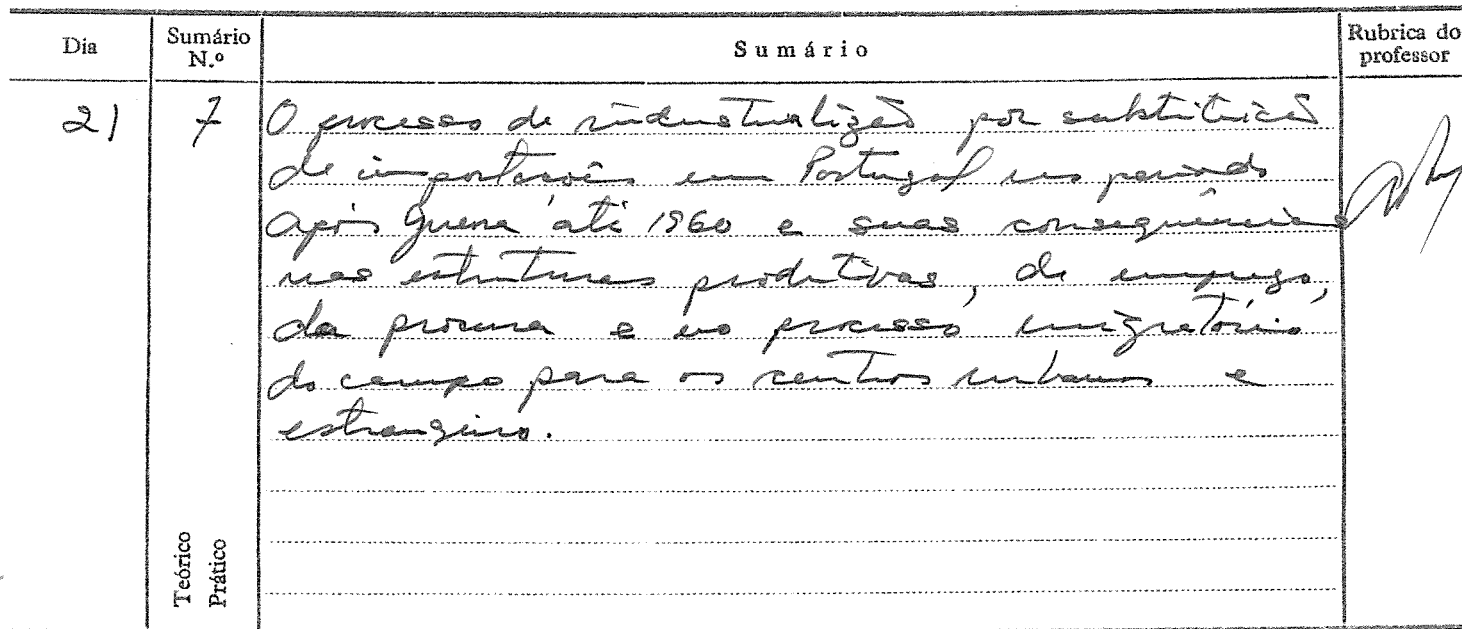 Dia
Sumário N.º
Sumário
Rubrica do professor
21
7
O processo de industrialização por substituição
de importações em Portugal no período
após guerra até 1960 e suas consequências
nas estruturas produtivas, de emprego,
da procura e no processo migratório
do campo para os centros urbanos e
estrangeiro.
Teórico
Prático